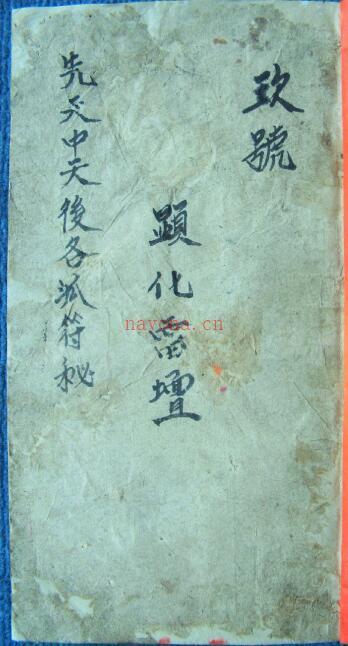 玖號
顕化雷壇
先天中天後各派符秘
nayona.cn